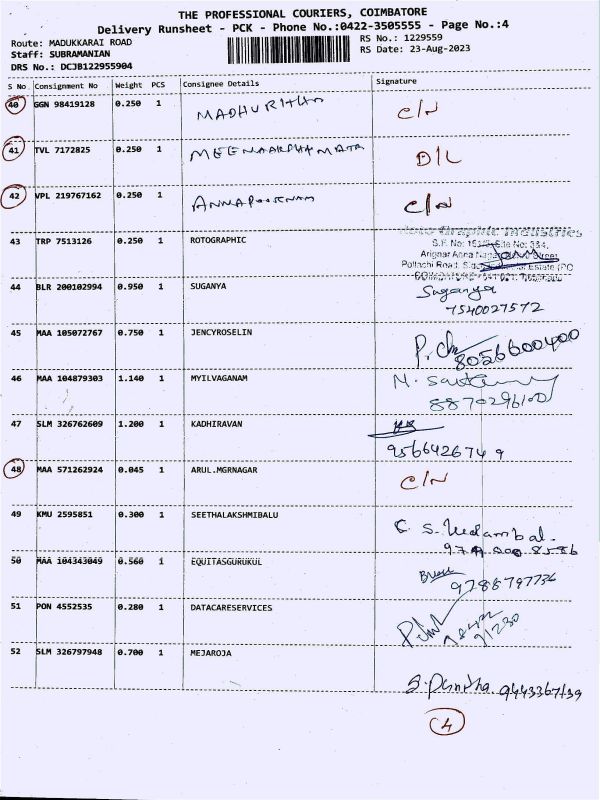 THE PROFESSIONAL COURIERS, COIMBATORE
Delivery Runsheet - PCK - Phone No.:0422-3505555 - Page No.:4
Route: MADUKKARAI ROAD
RS No.: 1229559
Staff: SUBRAMANIAN
RS Date: 23-Aug-2023
DRS No.: DCJB122955904
S No. Consignment No Weight PCS Consignee Details Signature
40 GGN 98419128 0.250 1 MADHURITHA C/N
41 TVL 7172825 0.250 1 D/L
42 VPL 219767162 0.250 1 ANNAPOORNAM C/N
43 TRP 7513126 0.250 1 ROTOGRAPHIC
Graphic Industries
Arignar Anna Street
Pollachi Road Estate (PO
44 BLR 200102994 0.950 1 SUGANYA Suganya
7540027572
45 MAA 105072767 0.750 1 JENCYROSELIN
8056600400
46 MAA 104879303 1.140 1 MYILVAGANAM
8870296100
47 SLM 326762609 1.200 1 KADHIRAVAN
9566426749
48 MAA 571262924 0.045 1 ARUL.MGRNAGAR C/N
49 KMU 2595851 0.300 1 SEETHALAKSHMIBALU
50 MAA 104343049 0.560 1 EQUITASGURUKUL
9788797736
51 PON 4552535 0.280 1 DATACARESERVICES
52 SLM 326797948 0.700 1 MEJAROJA
4